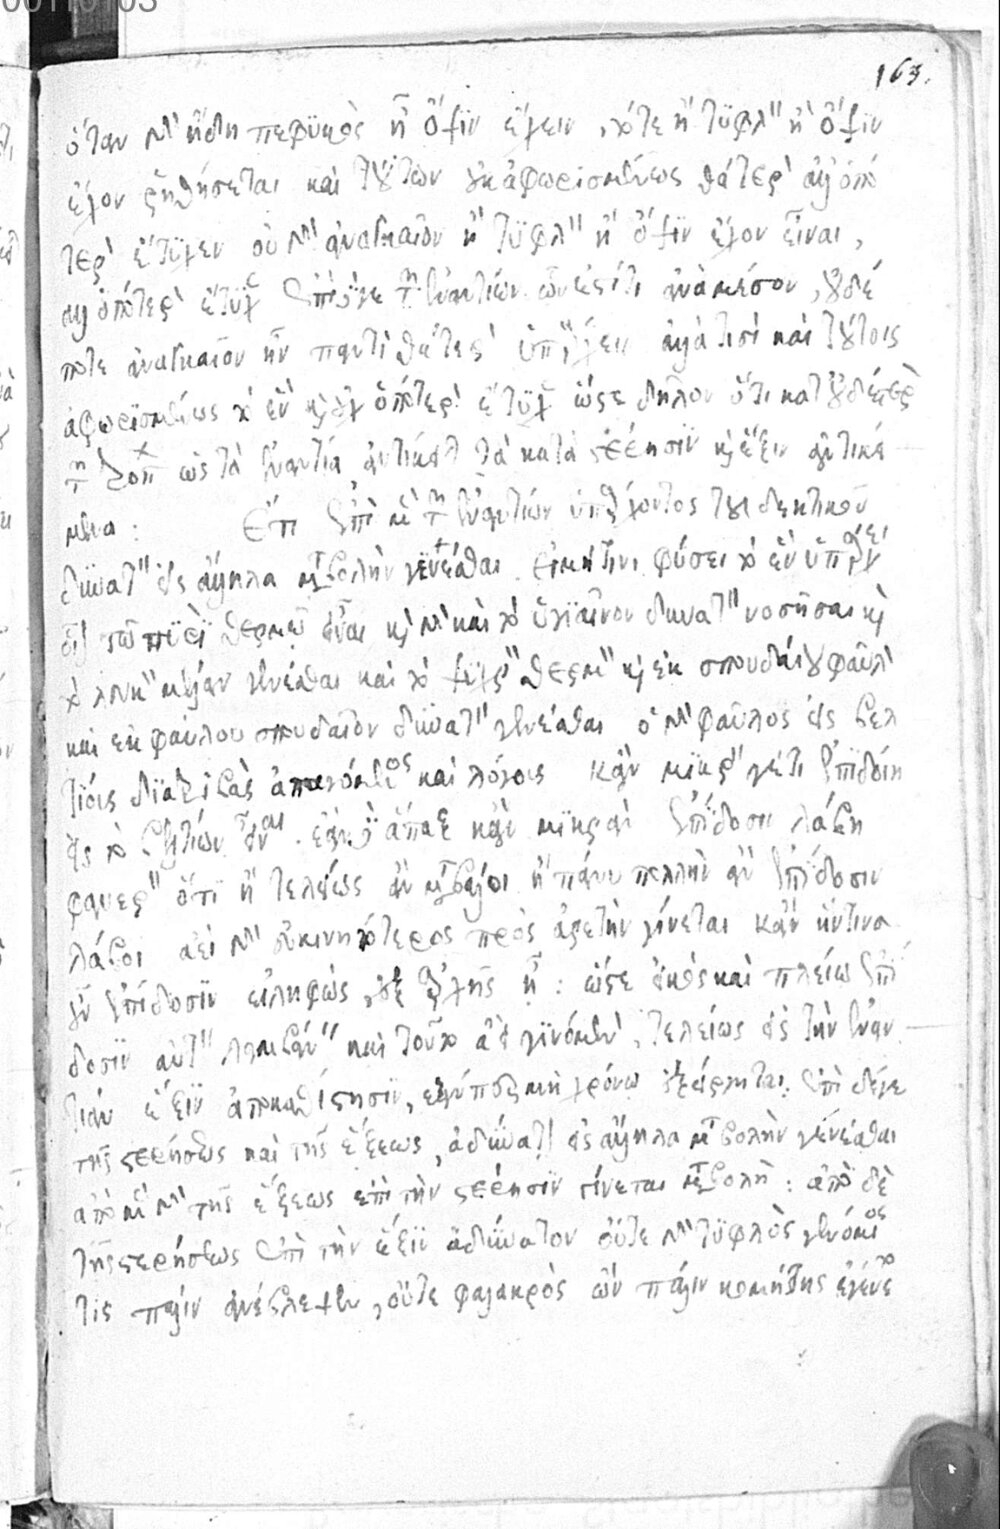 00110163
163.
ὅταν δὲ ἤδη πεφυκὸς ᾖ ὄψιν ἔχειν, τότε ἢ τυφλὸν ἢ ὄψιν
ἔχον ῥηθήσεται καὶ τούτων οὐκ ἀφωρισμένως θάτερον ἀλλ' ὁπό
τερον ἔτυχεν οὐ δὲ ἀναγκαῖον ἢ τυφλὸν ἢ ὄψιν ἔχον εἶναι,
ἀλλ' ὁπότερον ἔτυχεν ἐπὶ δέ γε τῶν ἐναντίων ὧν ἐστί τι ἀνὰ μέσον, οὐδέ
ποτε ἀναγκαῖον ἦν παντὶ θάτερον ὑπάρχειν ἀλλά τισὶ καὶ τούτοις
ἀφωρισμένως τὸ ἓν καὶ οὐχ ὁπότερον ἔτυχεν ὥστε δῆλον ὅτι κατ' οὐδέτερον
τῶν τρόπων ὡς τὰ ἐναντία ἀντίκειται τὰ κατὰ στέρησιν καὶ ἕξιν ἀντικεί
μενα: Ἔτι ἐπὶ μὲν τῶν ἐναντίων ὑπάρχοντος τοῦ δεκτικοῦ
δυνατὸν εἰς ἄλληλα μεταβολὴν γενέσθαι εἰ μή τινι φύσει τὸ ἓν ὑπάρχει
οἷον τῷ πυρὶ θερμῷ εἶναι καὶ γὰρ καὶ τὸ ὑγιαῖνον δυνατὸν νοσῆσαι καὶ
τὸ λευκὸν μέλαν γενέσθαι καὶ τὸ ψυχρὸν θερμὸν καὶ ἐκ σπουδαίου φαῦλον
καὶ ἐκ φαύλου σπουδαῖον δυνατὸν γενέσθαι ὁ γὰρ φαῦλος εἰς βελ
τίους διατριβὰς ἀπαγόμενος καὶ λόγους κἂν μικρόν γέ τι ἐπιδοίη
εἰς τὸ βελτίων εἶναι. ἐὰν δὲ ἅπαξ κἂν μικρὰν ἐπίδοσιν λάβῃ
φανερὸν ὅτι ἢ τελείως ἂν μεταβάλοι ἢ πάνυ πολλὴν ἂν ἐπίδοσιν
λάβοι ἀεὶ γὰρ εὐκινητότερος πρὸς ἀρετὴν γίνεται κἂν ἥντινα
οὖν ἐπίδοσιν εἰληφὼς ἐξ ἀρχῆς ᾖ: ὥστε εἰκὸς καὶ πλείω ἐπί
δοσιν αὐτὸν λαμβάνειν καὶ τοῦτο ἀεὶ γινόμενον, τελείως εἰς τὴν ἐναν
τίαν ἕξιν ἀποκαθίστησιν, ἐάνπερ μὴ χρόνῳ ἐξείργηται. ἐπὶ δέ γε
τῆς στερήσεως καὶ τῆς ἕξεως, ἀδύνατον εἰς ἄλληλα μεταβολὴν γενέσθαι
ἀπὸ μὲν γὰρ τῆς ἕξεως ἐπὶ τὴν στέρησιν γίνεται μεταβολή: ἀπὸ δὲ
τῆς στερήσεως ἐπὶ τὴν ἕξιν ἀδύνατον οὔτε γὰρ τυφλὸς γενόμενος
τις πάλιν ἀνέβλεψεν, οὔτε φαλακρὸς ὢν πάλιν κομήτης ἐγένετο